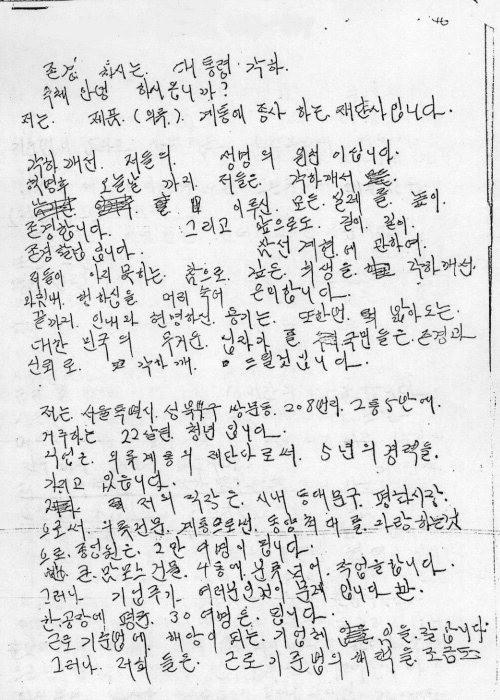 존경 하시는. 대통령 각하.
옥체 안영 하시옵니까?
저는. 제품. (의류.). 계통에 종사 하는. 재단사입니다.
각하께선. 저들의. 생명의 원선 이십니다.
혁명후 오늘날 까지 저들은. 각하께서
이루신. 모든. 일레를. 높이.
존경합니다. 그리고 앞으로도. 길이. 길이.
존경할겁니다. 삼선계헌.에 관하여.
저들이 아지 못하는. 참으로. 깊은. 희생을. 각하께선.
머리 숙여 은미합니다.
끝까지. 인내와 현명하신. 용기는. 또한번. 밝아오는.
대한 민국의 무거운. 십자가를 국민들은. 존경과
신뢰로. 각하께. 드릴것입니다.
저는. 서울특별시. 성북구 쌍문동. 208번지. 2통5반에.
거주하는 22살된 청년 입니다.
직업은. 의류계통의 재단사로서. 5년의 경력을.
가지고 있습니다.
저의 직장은. 시내 동대문구. 평화시장.
으로써 의류전문. 계통으로썬. 동양 최대를. 자랑하는것
으로. 종업원은. 2만 여명이 됩니다.
큰 맘모스건물. 4동에 분류되어. 작업을합니다.
그러나 기업주가 여러분인것이 문제 입니다만.
한공장에 평균. 30여명은. 됩니다.
근로기준법에. 해당이 되는. 기업체임을. 잘 압니다.
그러나. 저희 들은. 근로기준법의 혜택을. 조금도